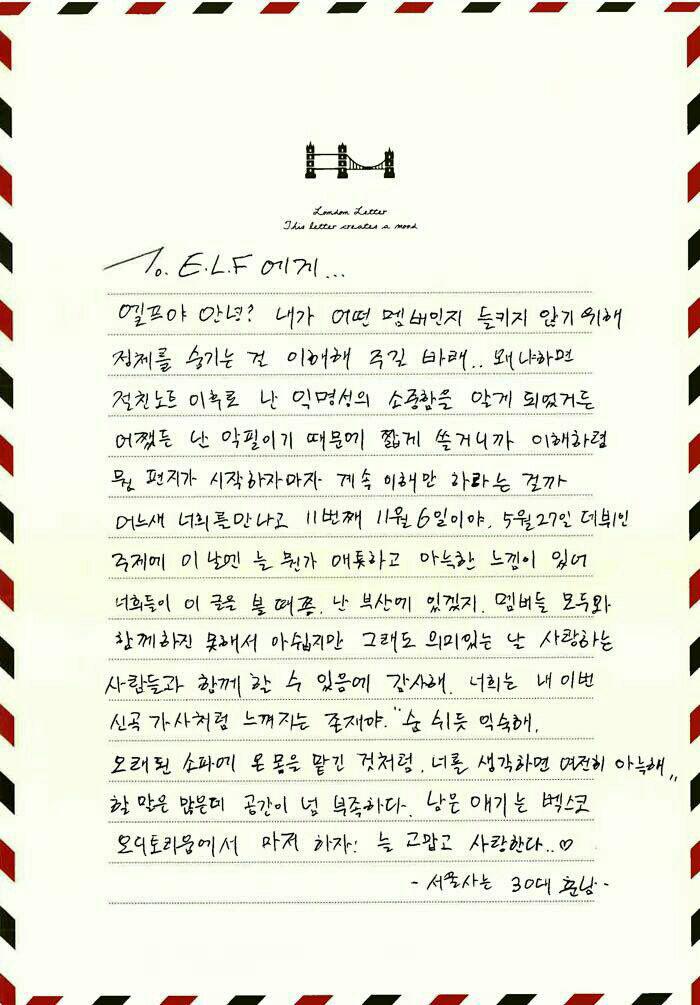 London Letter
This letter creates a mood
To. E.L.F 에게...
엘프야 안녕? 내가 어떤 멤버인지 들키지 않기 위해
정체를 숨기는 건 이해해 주길 바래.. 왜냐하면
절친노트 이후로 난 익명성의 소중함을 알게 되었거든
어쨌든 난 악필이기 때문에 짧게 쓸거니까 이해하렴
뭔 편지가 시작하자마자 계속 이해만 하라는 걸까
어느새 너희를 만나고 11번째 11월 6일이야. 5월 27일 데뷔인
주제에 이 날엔 늘 뭔가 애틋하고 아늑한 느낌이 있어
너희들이 이 글을 볼 때쯤, 난 부산에 있겠지. 멤버들 모두와
함께하진 못해서 아쉽지만 그래도 의미있는 날 사랑하는
사람들과 함께 할 수 있음에 감사해. 너희는 내 이번
신곡 가사처럼 느껴지는 존재야. "숨 쉬듯 익숙해,
오래된 소파에 온 몸을 맡긴 것처럼, 너를 생각하면 여전히 아늑해"
할 말은 많은데 공간이 넘 부족하다. 남은 얘기는 벡스코
오디토리움에서 마저 하자! 늘 고맙고 사랑한다..♡
- 서울사는 30대 훈남 -